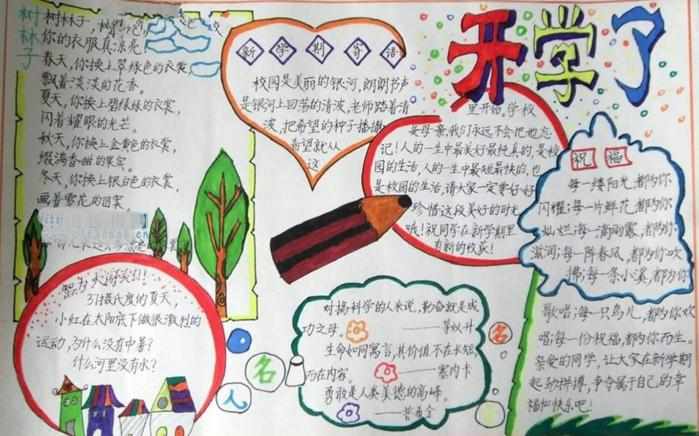 开学了
树林子
树林子,
你的衣服真漂亮
春天,你换上翠绿色的衣裳,
飘着淡淡的花香。
夏天,你换上碧绿绿的衣裳,
闪着耀眼的光芒。
秋天,你换上金黄色的衣裳,
缀满香甜的果实。
冬天,你换上银白色的衣裳,
画着雪花的图案
新学期寄语
校园是美丽的银河,朗朗书声
是银河上回荡的清波,老师踏着清
波,把希望的种子播撒
希望就从
这
里开始,学校
是母亲,我们永远不会把她忘
记!人的一生中最美好最快真的,是校
园的生活,人的一生中最基最快的,也
是校园的生活,请大家一定要好好
珍惜这段美好的时光
哦!祝同学在新学期里
有新的收获!
祝福
每一缕阳光,都为你
闪耀;每一片鲜花,都为你
灿烂;每一滴雨露,都为你
滋润;每一阵春风,都为你吹
拂;每一条小溪,都为你
歌唱;每一只鸟儿,都为你欢
唱;每一份祝福,都为你而生。
亲爱的同学,让大家在新学期
起劲拼搏,争夺属于自己的幸
福和快乐吧!
智力大游乐园!!!
37摄氏度的夏天,
小红在太阳底下做很激烈的
运动,为什么没有中暑?
什么河里没有水?
名人名言
对搞科学的人来说,勤奋就是成
功之母。——茅以升
生命如同寓言,其价值不在长短
而在内容。——塞内卡
勇敢是人类美德的高峰。
——普希金